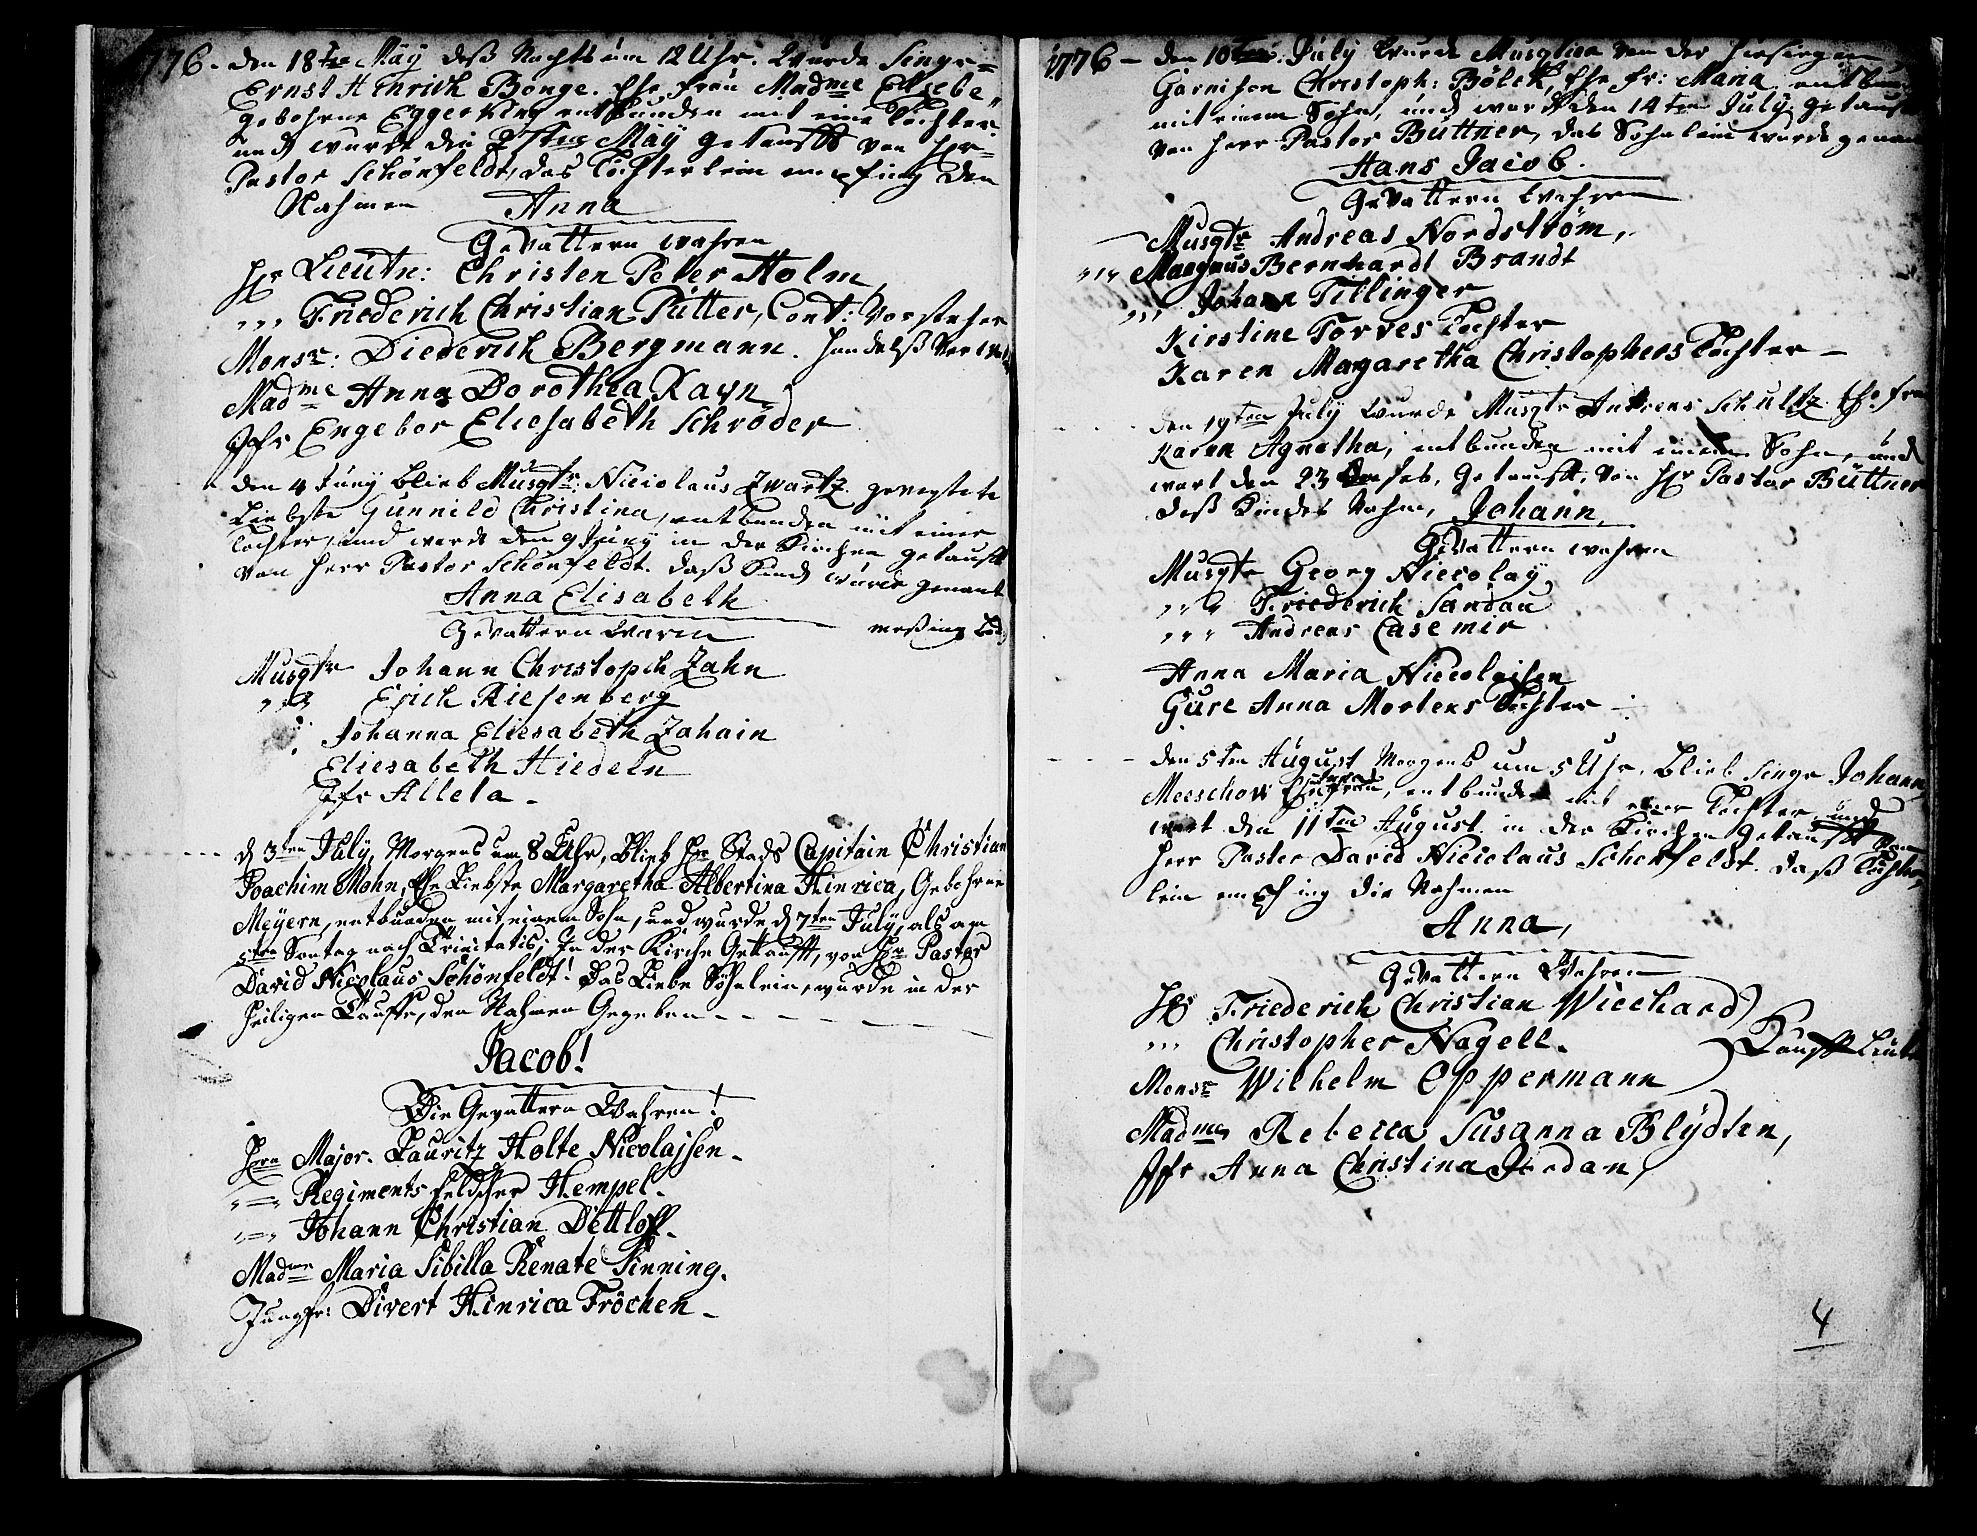 1776. den 18ten Maÿ deß Nachts um 12 Uhr. Wurde Sing=
Ernst Henrich Bonge. Ehe frau Madme Ellsebe"
gebohrne Eggerking entbunden mit eine Tochter.
und wurde den Maÿ getaufft von Hr=
Pastor Schönfeldt, das Töchterlein empfing den
Nahmen Anna
Gevattern wahren
Hr Lieutn: Christen Peter Holm,
,,, Friederich Christian Pütter, Cont: Vorsteher
Monsr: Diederich Bergmann. Handelß
Madme Anna Dorothea Rayn
Jfr Engebor Eliesabeth Schröder
den 4 Juny blieb Musqtr: Nicolaus Zwartz.
Liebste Gunnild Christina, entbunden mit einer
Tochter, und ward den 9 Juny in der Kirchen getaufft
von Herr Pastor Schönfeldt. daß Kind würde genant
Anna Elisabeth
Gevattern Warin
Musqtr Johann Christopch Zahn
,,, Erich Riesenberg
Johanna Eliesabeth Zahain
Eliesabeth Hiedeln
Jfr Alleta -
d 3ten July, Morgens um 8 Uhr, blieb Hr Stads Capitain Christian
Joachim Mohn, Ehe Liebste Margaretha Albertina Hinrica, Gebohrne
Meyern, entbunden mit einem Sohn, und wurde d 7ten July, als am
5ten Sontag nach Trinitatis; In der Kirche Getaufft, von Hr Pastor
David Nicolaus Schönfeldt! Das Liebe Söhnlein, wurde in der
Heiligen Tauffe, den Nahmen Gegeben - - -
Jacob!
Die Gevattern Wahren!
Hrn Major. Lauritz Holte Nicolajsen.
Regiments feldscher Hempel.
Johann Christian Dettloff.
Madme Maria Sibilla Renate Sinning.
Jungfr: Divert Hinrica Fröchen -
1776 - den 10ten July Wurde von der hiesigen
Garnison Christoph: Bölck, Ehe fr: Maria
mit einem Sohn, und ward den 14ten July getauft
von Herr Pastor Büttner, das Sohnlein wurde genan
Hans Jacob.
Gevattern Wahren
Musqtr Andreas Nordström,
,,, Magnus Bernhardt Brandt
,,, Johann Tillinger
Kirstine Torves Tochter
Karen Magaretha Christophers Tochter -
den 19ten July wurde Musqtr Andreas Schultz Ehe frau
Karen Agnetha, entbunden mit einem Sohn, und
wart den 23 getaufft, von Hr Pastor Büttner
deß Kindes Nahm, Johann,
Gevattern wahren
Musqtr Georg Niecolaÿ
,,, Friederich Sandau
,,, Andreas Casemir
Anna Maria Niecolaisen
Gure Anna Mortens Tochter -
den 5ten August Morgens um 5 Uhr, blieb Sing Johann
Meeschow Ehefrau, entbunden mit einer Tochter und
wart den 11ten August in der Kirchen getaufft von
Herr Paster David Niecolaus Schönfeldt. daß Töchter
lein empfing die Nahmen
Anna,
Gevattern Wahren
Hr Friederich Christian Wiechard
,,, Christopher Nagell.
Kauff Leute
Monsr Wilhelm Oppermann
Madme Rebecca Susanna Blydten,
Jfr Anna Christina Jordan,
4